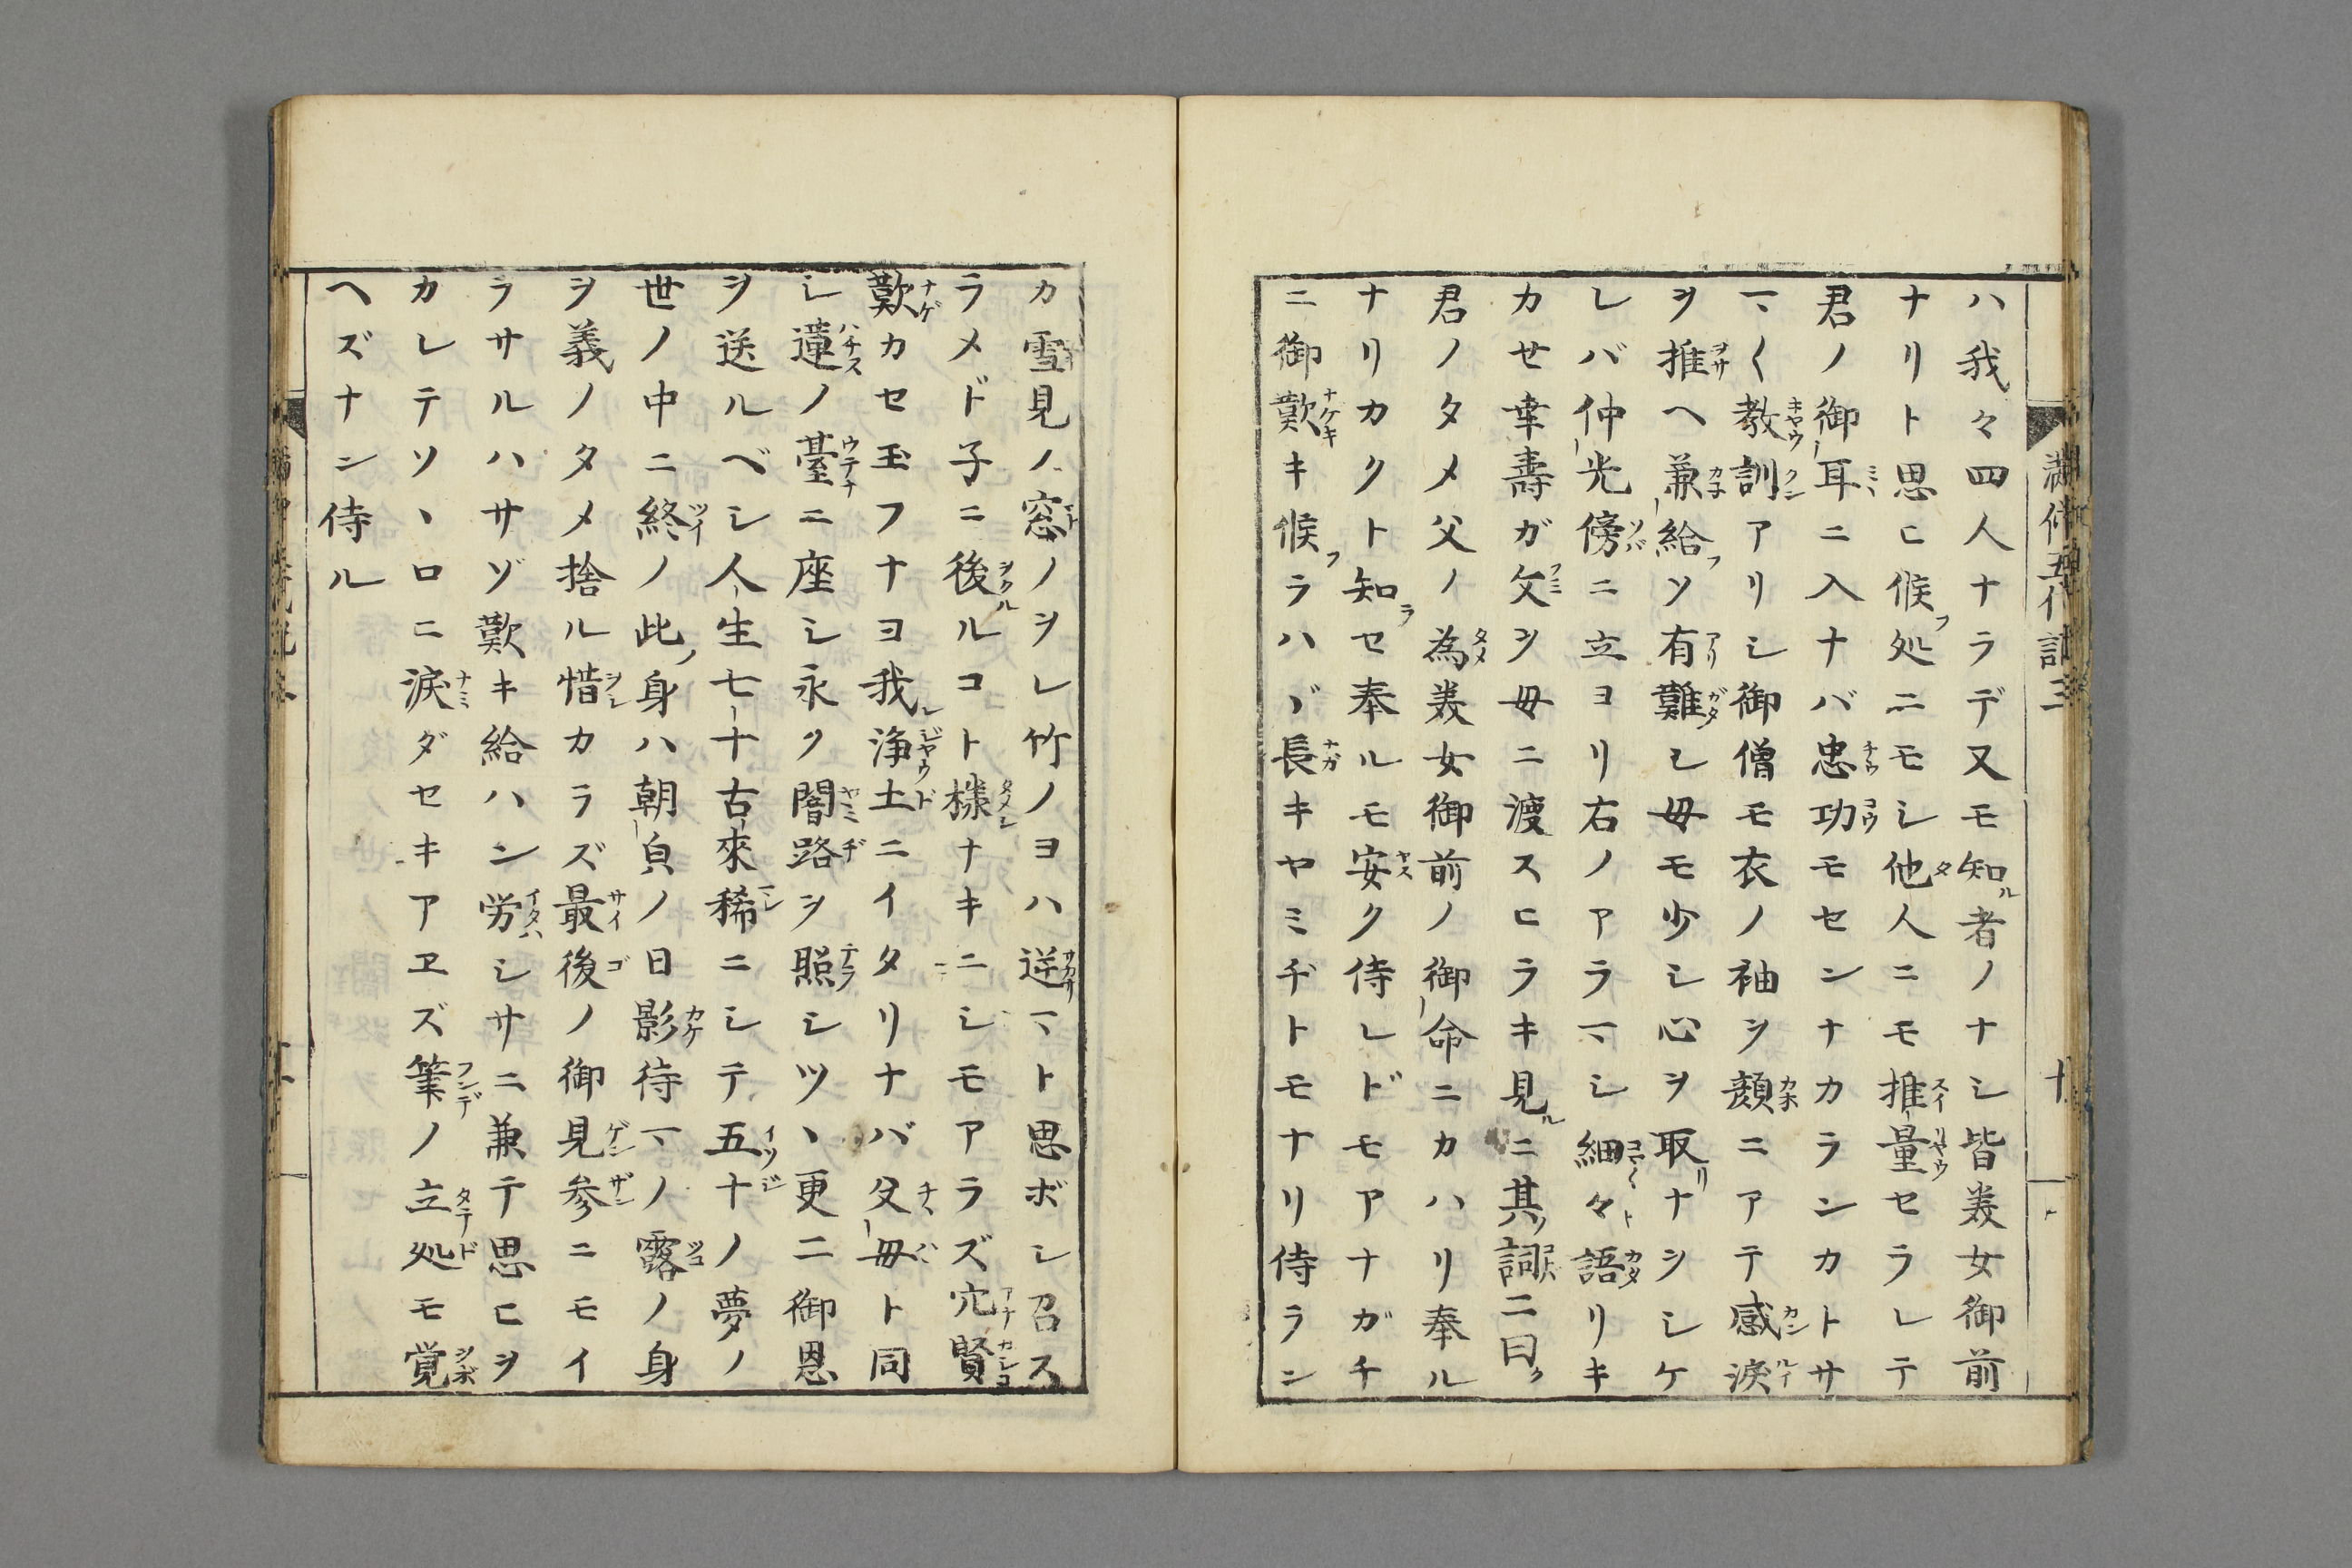 ハ我々四人ナラデ又モ知ル者ノナシ皆美女御前
ナリト思ヒ候フ処ニモシ他人ニモ推量セラレテ
君ノ御耳ニ入ナバ忠功モセンナカランカトサ
マ〱教訓アリシ御僧モ衣ノ袖ヲ顔ニアテ感涙
ヲ推ヘ兼給フソ有難シ母モ少シ心ヲ取リナヲシケ
レバ仲光傍ニ立ヨリ右ノアラマシ細々ト語リキ
カセ幸壽ガ文ヲ母ニ渡スヒラキ見ルニ其ノ詞ニ曰ク
君ノタメ父ノ為美女御前ノ御命ニカハリ奉ル
ナリカクト知ラセ奉ルモ安ク侍レドモアナガチ
ニ御歎キ候フラハヾ長キヤミヂトモナリ侍ラン
カ雪見ノ窓ノヲレ竹ノヨハ逆マト思ボシ召ス
ラメド子ニ後ルコト様ナキニシモアラズ穴賢
歎カセ玉フナヨ我レ浄土ニイタリナバ父母ト同
シ蓮ノ臺ニ座シ永ク闇路ヲ照シツヽ更ニ御恩
ヲ送ルベシ人生七十古來稀ニシテ五十ノ夢ノ
世ノ中ニ終ノ此ノ身ハ朝㒵ノ日影待マノ露ノ身
ヲ義ノタメ捨ル惜カラズ最後ノ御見参ニモイ
ラサルハサゾ歎キ給ハン労シサニ兼テ思ヒヲ
カレテソヽロニ涙ダセキアヱズ筆ノ立処モ覚
ヘズナン侍ル